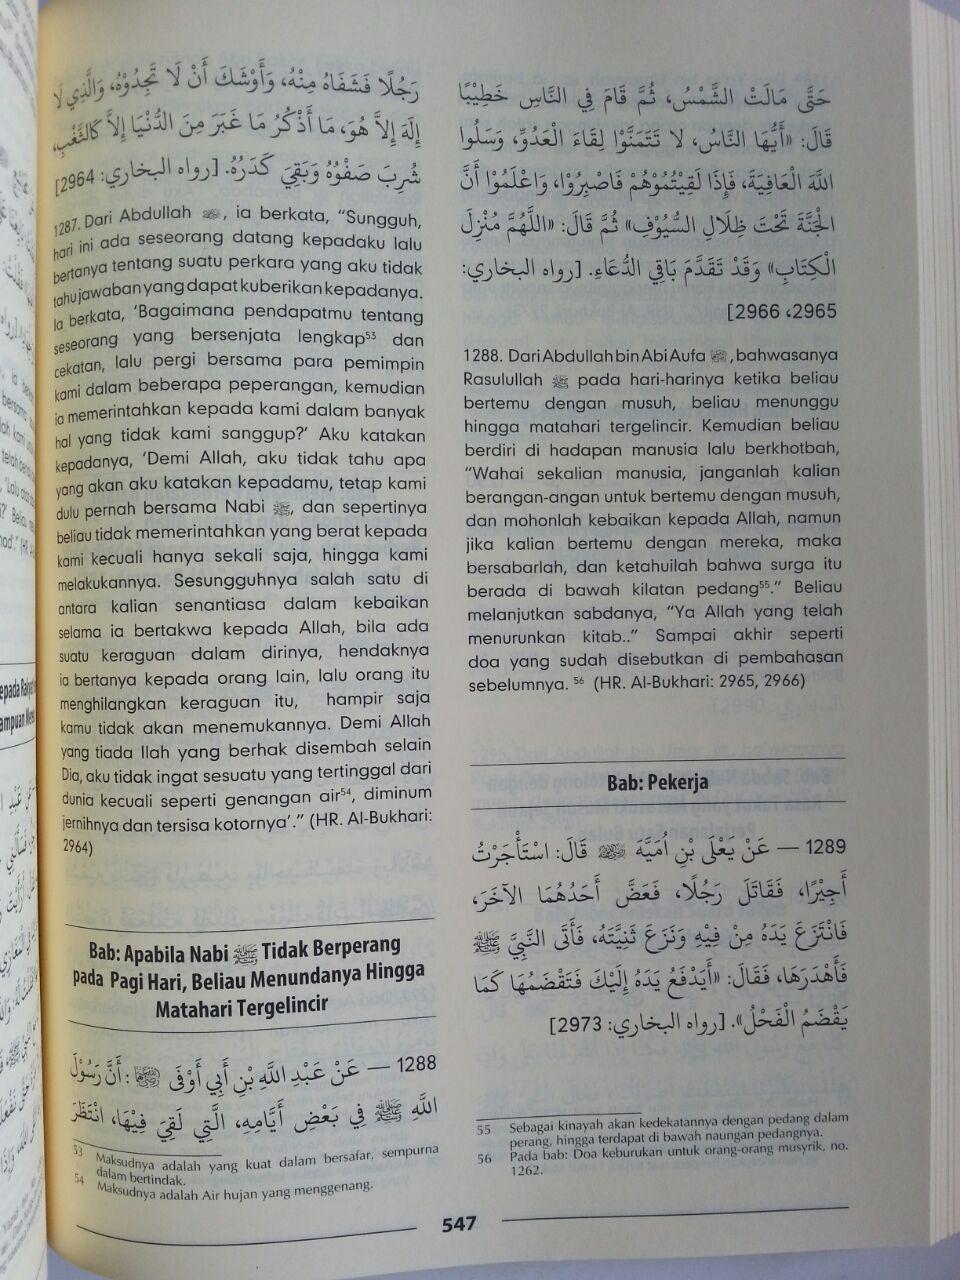 رَجُلًا فَشَفَاهُ مِنْهُ، وَأَوْشَكَ أَنْ لَا تَجِدُوْهُ، وَالَّذِي لَا
إِلَهَ إِلاَّ هُوَ، مَا أَذْكُرُ مَا غَبَرَ مِنَ الدُّنْيَا إِلاَّ كَالثَّغْبِ،
شُرِبَ صَفْوُهُ وَبَقِيَ كَدَرُهُ. [رواه البخاري: 2964]
1287. Dari Abdullah ﷺ, ia berkata, “Sungguh,
hari ini ada seseorang datang kepadaku lalu
bertanya tentang suatu perkara yang aku tidak
tahu jawaban yang dapat kuberikan kepadanya.
Ia berkata, ‘Bagaimana pendapatmu tentang
seseorang yang bersenjata lengkap⁵³ dan
cekatan, lalu pergi bersama para pemimpin
kami dalam beberapa peperangan, kemudian
ia memerintahkan kepada kami dalam banyak
hal yang tidak kami sanggup?’ Aku katakan
kepadanya, ‘Demi Allah, aku tidak tahu apa
yang akan aku katakan kepadamu, tetap kami
dulu pernah bersama Nabi ﷺ, dan sepertinya
beliau tidak memerintahkan yang berat kepada
kami kecuali hanya sekali saja, hingga kami
melakukannya. Sesungguhnya salah satu di
antara kalian senantiasa dalam kebaikan
selama ia bertakwa kepada Allah, bila ada
suatu keraguan dalam dirinya, hendaknya
ia bertanya kepada orang lain, lalu orang itu
menghilangkan keraguan itu, hampir saja
kamu tidak akan menemukannya. Demi Allah
yang tiada Ilah yang berhak disembah selain
Dia, aku tidak ingat sesuatu yang tertinggal dari
dunia kecuali seperti genangan air⁵⁴, diminum
jernihnya dan tersisa kotornya’.” (HR. Al-Bukhari:
2964)
Bab: Apabila Nabi ﷺ Tidak Berperang
pada Pagi Hari, Beliau Menundanya Hingga
Matahari Tergelincir
1288 — عَنْ عَبْدِ اللَّهِ بْنِ أَبِي أَوْفَى : أَنَّ رَسُوْلَ
اللَّهِ ﷺ فِي بَعْضِ أَيَّامِهِ، الَّتِي لَقِيَ فِيْهَا، انْتَظَرَ
53 Maksudnya adalah yang kuat dalam bersafar, sempurna
dalam bertindak.
54 Maksudnya adalah Air hujan yang menggenang.
حَتَّى مَالَتْ الشَّمْسُ، ثُمَّ قَامَ فِي النَّاسِ خَطِيْبًا
قَالَ: «أَيُّهَا النَّاسُ، لا تَتَمَنَّوْا لِقَاءَ الْعَدُوِّ، وَسَلُوا
اللَّهَ الْعَافِيَةَ، فَإِذَا لَقِيْتُمُوْهُمْ فَاصْبِرُوْا، وَاعْلَمُوْا أَنَّ
الْجَنَّةَ تَحْتَ ظِلَالِ السُّيُوْفِ» ثُمَّ قَالَ: «اللَّهُمَّ مُنْزِلَ
الْكِتَابِ» وَقَدْ تَقَدَّمَ بَاقِي الدُّعَاءِ. [رواه البخاري:
2965، 2966]
1288. Dari Abdullah bin Abi Aufa , bahwasanya
Rasulullah ﷺ pada hari-harinya ketika beliau
bertemu dengan musuh, beliau menunggu
hingga matahari tergelincir. Kemudian beliau
berdiri di hadapan manusia lalu berkhotbah,
“Wahai sekalian manusia, janganlah kalian
berangan-angan untuk bertemu dengan musuh,
dan mohonlah kebaikan kepada Allah, namun
jika kalian bertemu dengan mereka, maka
bersabarlah, dan ketahuilah bahwa surga itu
berada di bawah kilatan pedang⁵⁵.” Beliau
melanjutkan sabdanya, “Ya Allah yang telah
menurunkan kitab..” Sampai akhir seperti
doa yang sudah disebutkan di pembahasan
sebelumnya. ⁵⁶ (HR. Al-Bukhari: 2965, 2966)
Bab: Pekerja
1289 — عَنْ يَعْلَى بْنِ أُمَيَّةَ قَالَ: اسْتَأْجَرْتُ
أَجِيْرًا، فَقَاتَلَ رَجُلًا، فَعَضَّ أَحَدُهُمَا الآخَرَ،
فَانْتَزَعَ يَدَهُ مِنْ فِيْهِ وَنَزَعَ ثَنِيَّتَهُ، فَأَتَى النَّبِيَّ ﷺ
فَأَهْدَرَهَا، فَقَالَ: «أَيَدْفَعُ يَدَهُ إِلَيْكَ فَتَقْضَمُهَا كَمَا
يَقْضَمُ الْفَحْلُ». [رواه البخاري: 2973]
55 Sebagai kinayah akan kedekatannya dengan pedang dalam
perang, hingga terdapat di bawah naungan pedangnya.
56 Pada bab: Doa keburukan untuk orang-orang musyrik, no.
1262.
547